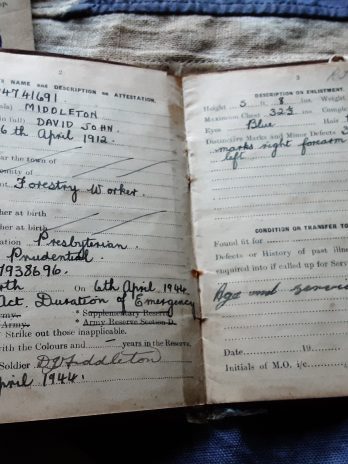 2
S NAME and DESCRIPTION on ATTESTATION.
4741691
MIDDLETON
in full) DAVID JOHN
6th April 1912.
ar the town of
unty of
Forestry Worker.
her at birth
her at birth
ation Presbyterian
Prudential
7938696.
rth On 6th April 1944
Act. Duration of Emergency
Army. * Supplementary Reserve.
Army. * Army Reserve Section D.
Strike out those inapplicable.
with the Colours and — years in the Reserve.
Soldier D J Middleton
April 1944.
3
DESCRIPTION ON ENLISTMENT.
Height 5 ft. 8 ins. Weight
Maximum Chest 32½ ins. Comple
Eyes Blue Hair
Distinctive Marks and Minor Defects
marks right forearm
left
CONDITION ON TRANSFER TO
Found fit for
Defects or History of past illn
enquired into if called up for Serv
Age and service
Date 19
Initials of M.O. i/c